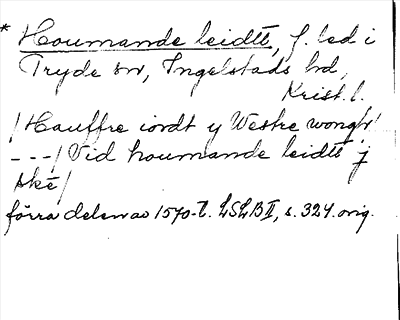 * Houmande leidtt, f. led i
Tryde sn, Ingelstads hd,
Krist. l.
/Hauffre iordt y Westre wongh/
---/ Vid houmande leidtt j
ské/
förra delen av 1570-t. LSLB II, s. 324. orig.